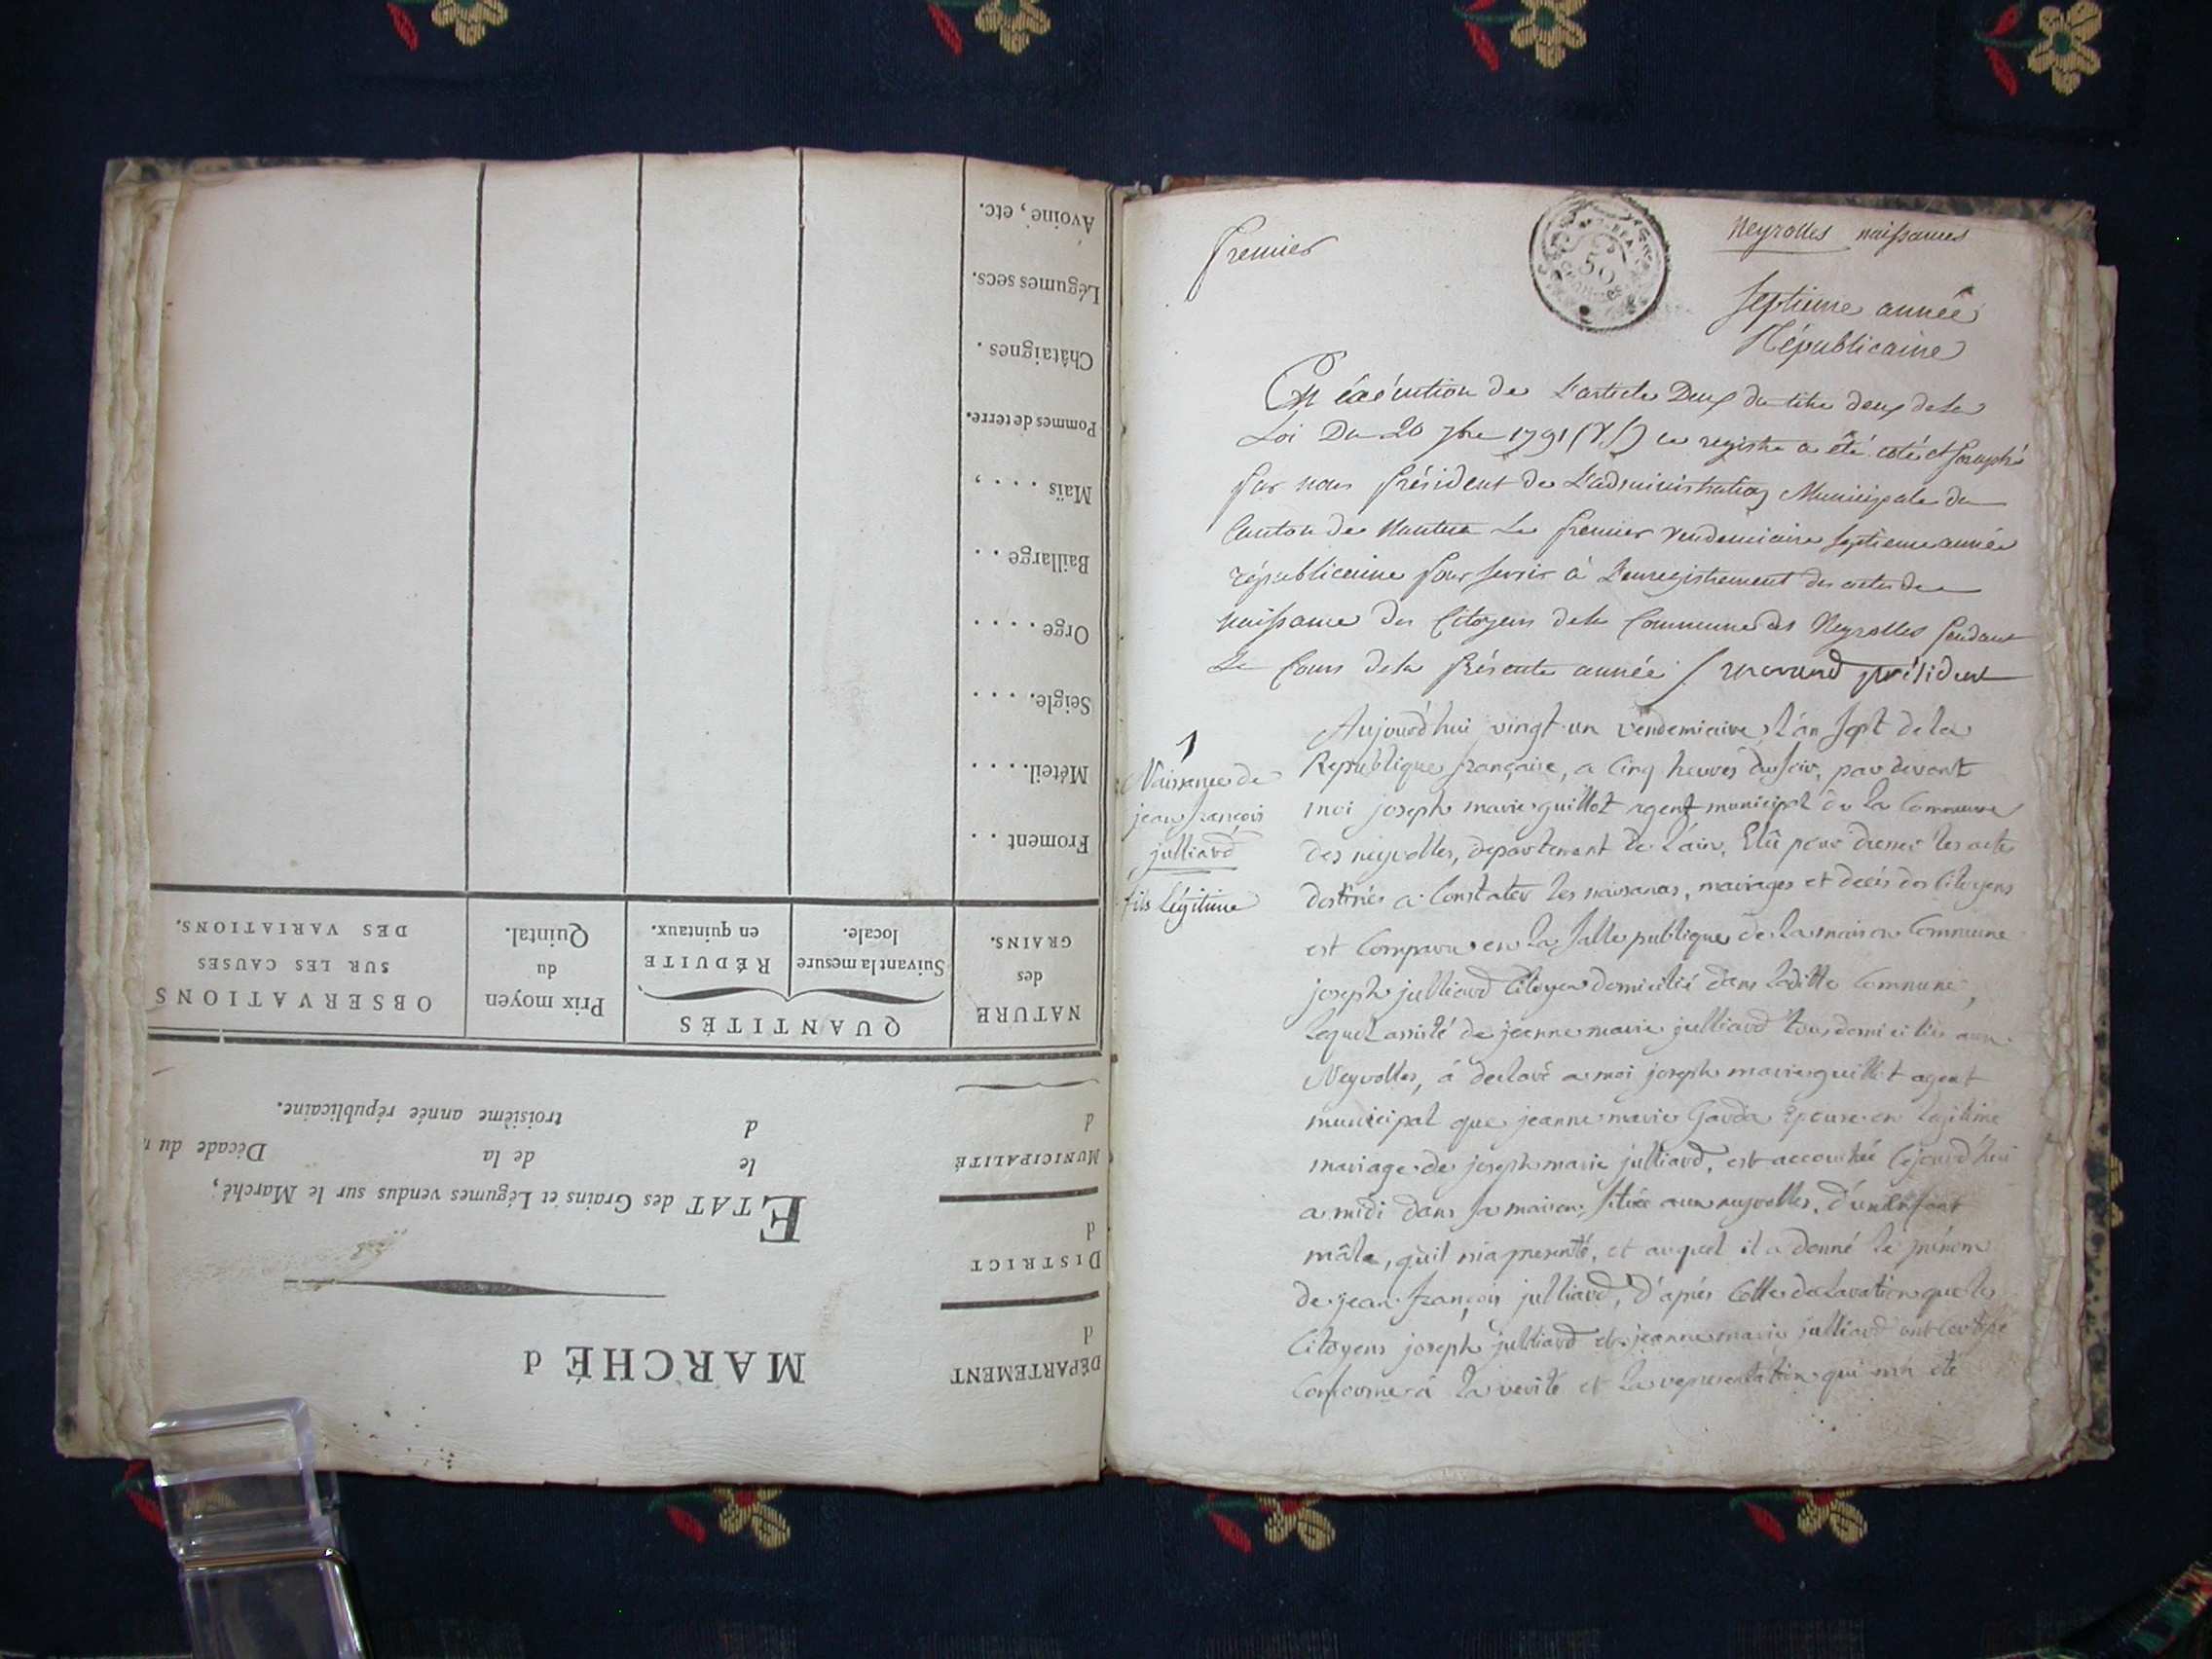 MARCHÉ d
DÉPARTEMENT
d
DISTRICT
d
MUNICIPALITÉ
d
ETAT des Grains et Légumes vendus sur le Marché,
le de la Décade du
d troisième année républicaine.
NATURE
des
GRAINS.
QUANTITÉS
Suivant la mesure
locale.
RÉDUITE
en quintaux.
Prix moyen
du
Quintal.
OBSERVATIONS
SUR LES CAUSES
DES VARIATIONS.
Froment . .
Méteil. . . .
Seigle. . . .
Orge . . . .
Baillarge . .
Maïs . . . ,
Pommes de terre.
Châtaignes .
Légumes secs.
Avoine, etc.
premier
50
Neyrolles naissances
Septieme année
Républicaine
En éxécution de L'article Deux du titre deux dela
Loi Du 20 7bre 1791 (V.S) ce registre a été coté et paraphé
par nous président de L'administration Municipale du
Canton de Nantua Le premier vendemiaire septieme année
républicaine pour servir à L'enregistrement des actes de
naissance des Citoyens dela Commune des Neyrolles pendant
Le Cours dela présente année / président
1
Naissance de
jean françois
julliard
fils Légitime
Aujourd'hui vingt-un vendemiaire, l'an sept de la
Republique française, a Cinq heures du soir, par devant
moi joseph marie guillot agent municipal de la Commune
des neyrolles, departement de L'ain, Elû pour dresser les actes
destinés a Constater les naissances, mariages et decés des Citoyens
est Comparu en la Salle publique de la maison Commune
joseph julliard Citoyen domicilié dans laditte Commune,
lequel assisté de jeanne marie julliard tous domiciliés aux
Neyrolles, á declaré a moi joseph marie guillot agent
municipal que jeanne marie Epouse en legitime
mariage de joseph marie julliard, est accouchée Cejourd'hui
a midi dans sa maison, située aux neyrolles, d'un Enfant
mâle, qu'il m'a presenté, et auquel il a donné le prénom
de jean françois julliard, D'aprés Cette declaration que les
Citoyens joseph julliard et jeanne marie julliard ont
Conforme á la verité et la representation qui m'a été